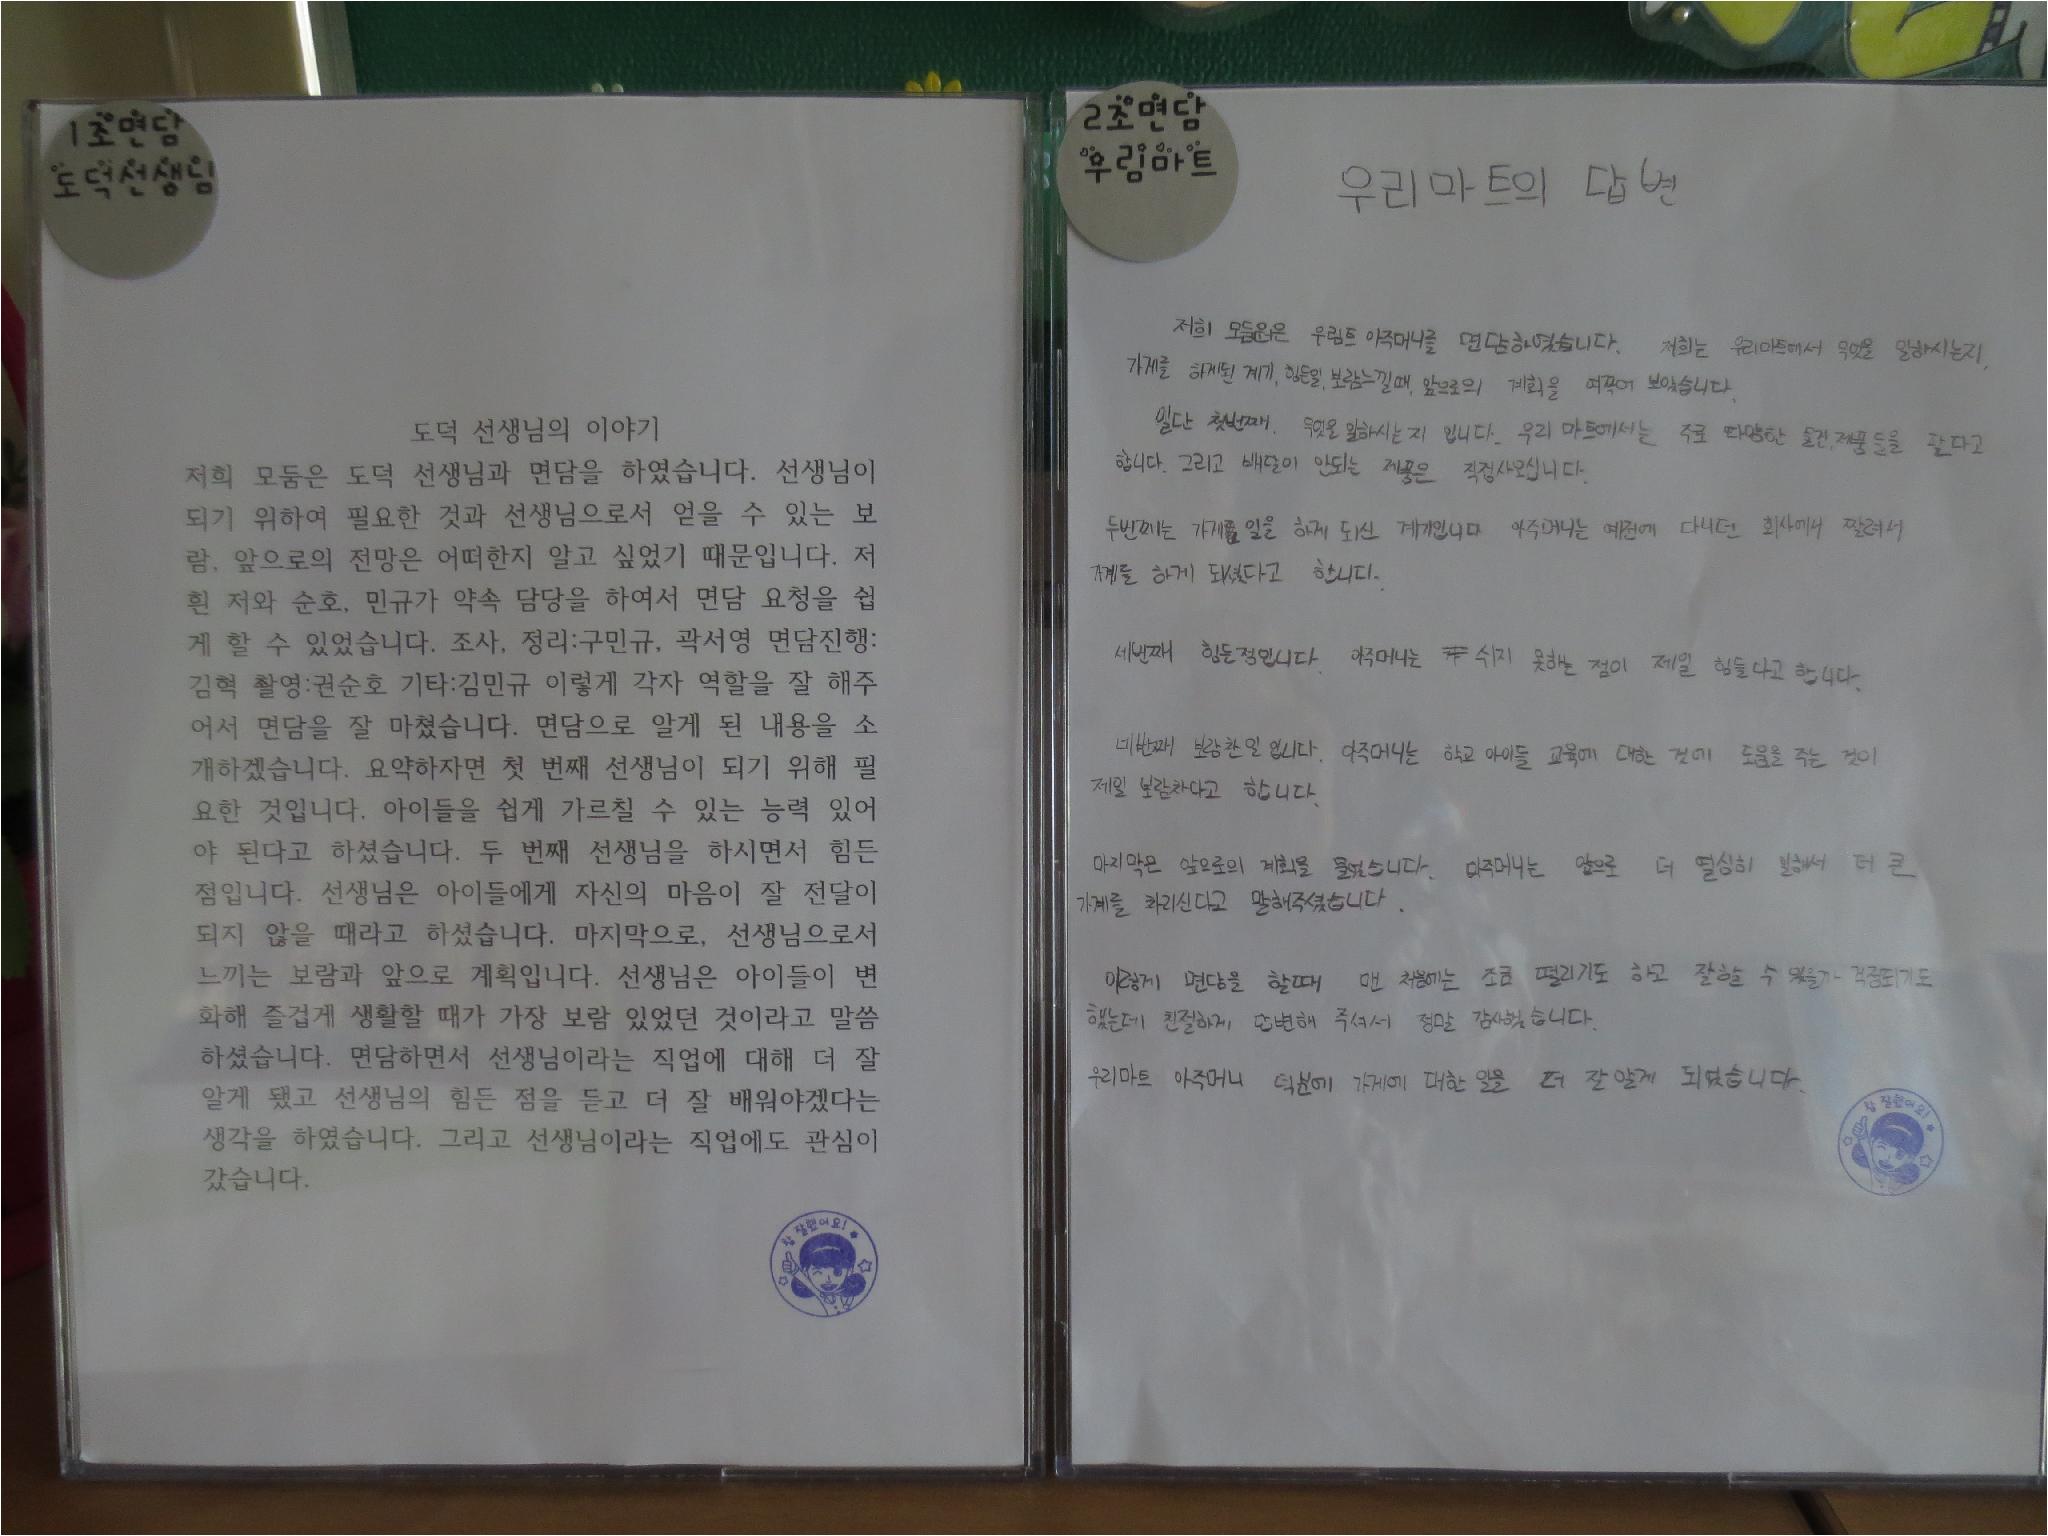 1조면담
도덕선생님
도덕 선생님의 이야기
저희 모둠은 도덕 선생님과 면담을 하였습니다. 선생님이
되기 위하여 필요한 것과 선생님으로서 얻을 수 있는 보
람, 앞으로의 전망은 어떠한지 알고 싶었기 때문입니다. 저
흰 저와 순호, 민규가 약속 담당을 하여서 면담 요청을 쉽
게 할 수 있었습니다. 조사, 정리:구민규, 곽서영 면담진행:
김혁 촬영:권순호 기타:김민규 이렇게 각자 역할을 잘 해주
어서 면담을 잘 마쳤습니다. 면담으로 알게 된 내용을 소
개하겠습니다. 요약하자면 첫 번째 선생님이 되기 위해 필
요한 것입니다. 아이들을 쉽게 가르칠 수 있는 능력 있어
야 된다고 하셨습니다. 두 번째 선생님을 하시면서 힘든
점입니다. 선생님은 아이들에게 자신의 마음이 잘 전달이
되지 않을 때라고 하셨습니다. 마지막으로, 선생님으로서
느끼는 보람과 앞으로 계획입니다. 선생님은 아이들이 변
화해 즐겁게 생활할 때가 가장 보람 있었던 것이라고 말씀
하셨습니다. 면담하면서 선생님이라는 직업에 대해 더 잘
알게 됐고 선생님의 힘든 점을 듣고 더 잘 배워야겠다는
생각을 하였습니다. 그리고 선생님이라는 직업에도 관심이
갔습니다.
참 잘했어요!
2조면담
우림마트
우리마트의 답변
저희 모둠원은 아주머니를 면담하였습니다. 저희는 우리마트에서 무엇을 일하시는지,
가게를 하게된 계기, 힘든일, 보람느낄때, 앞으로의 계획을 여쭈어 보았습니다.
일단 첫번째. 무엇을 일하시는지 입니다. 우리 마트에서는 주로 다양한 물건,제품들을 판다고
합니다. 그리고 배달이 안되는 제품은 직접사오십니다.
두번째는 가게 일을 하게 되신 계기입니다 아주머니는 예전에 다니던 회사에서 짤려서
가게를 하게 되셨다고 합니다.
세번째 힘든점입니다. 아주머니는 쉬지 못하는 점이 제일 힘들다고 합니다.
네번째 보람찬일 입니다. 아주머니는 학교 아이들 교육에 대한 것에 도움을 주는 것이
제일 보람차다고 합니다.
마지막은 앞으로의 계획을 물었습니다. 아주머니는 앞으로 더 열심히 일해서 더 큰
가게를 차리신다고 말해주셨습니다.
이렇게 면담을 할때 맨 처음에는 조금 떨리기도 하고 잘할 수 있을까 걱정되기도
했는데 친절하게 답변해 주셔서 정말 감사했습니다.
우리마트 아주머니 덕분에 가게에 대한 일을 더 잘 알게 되었습니다.
참 잘했어요!